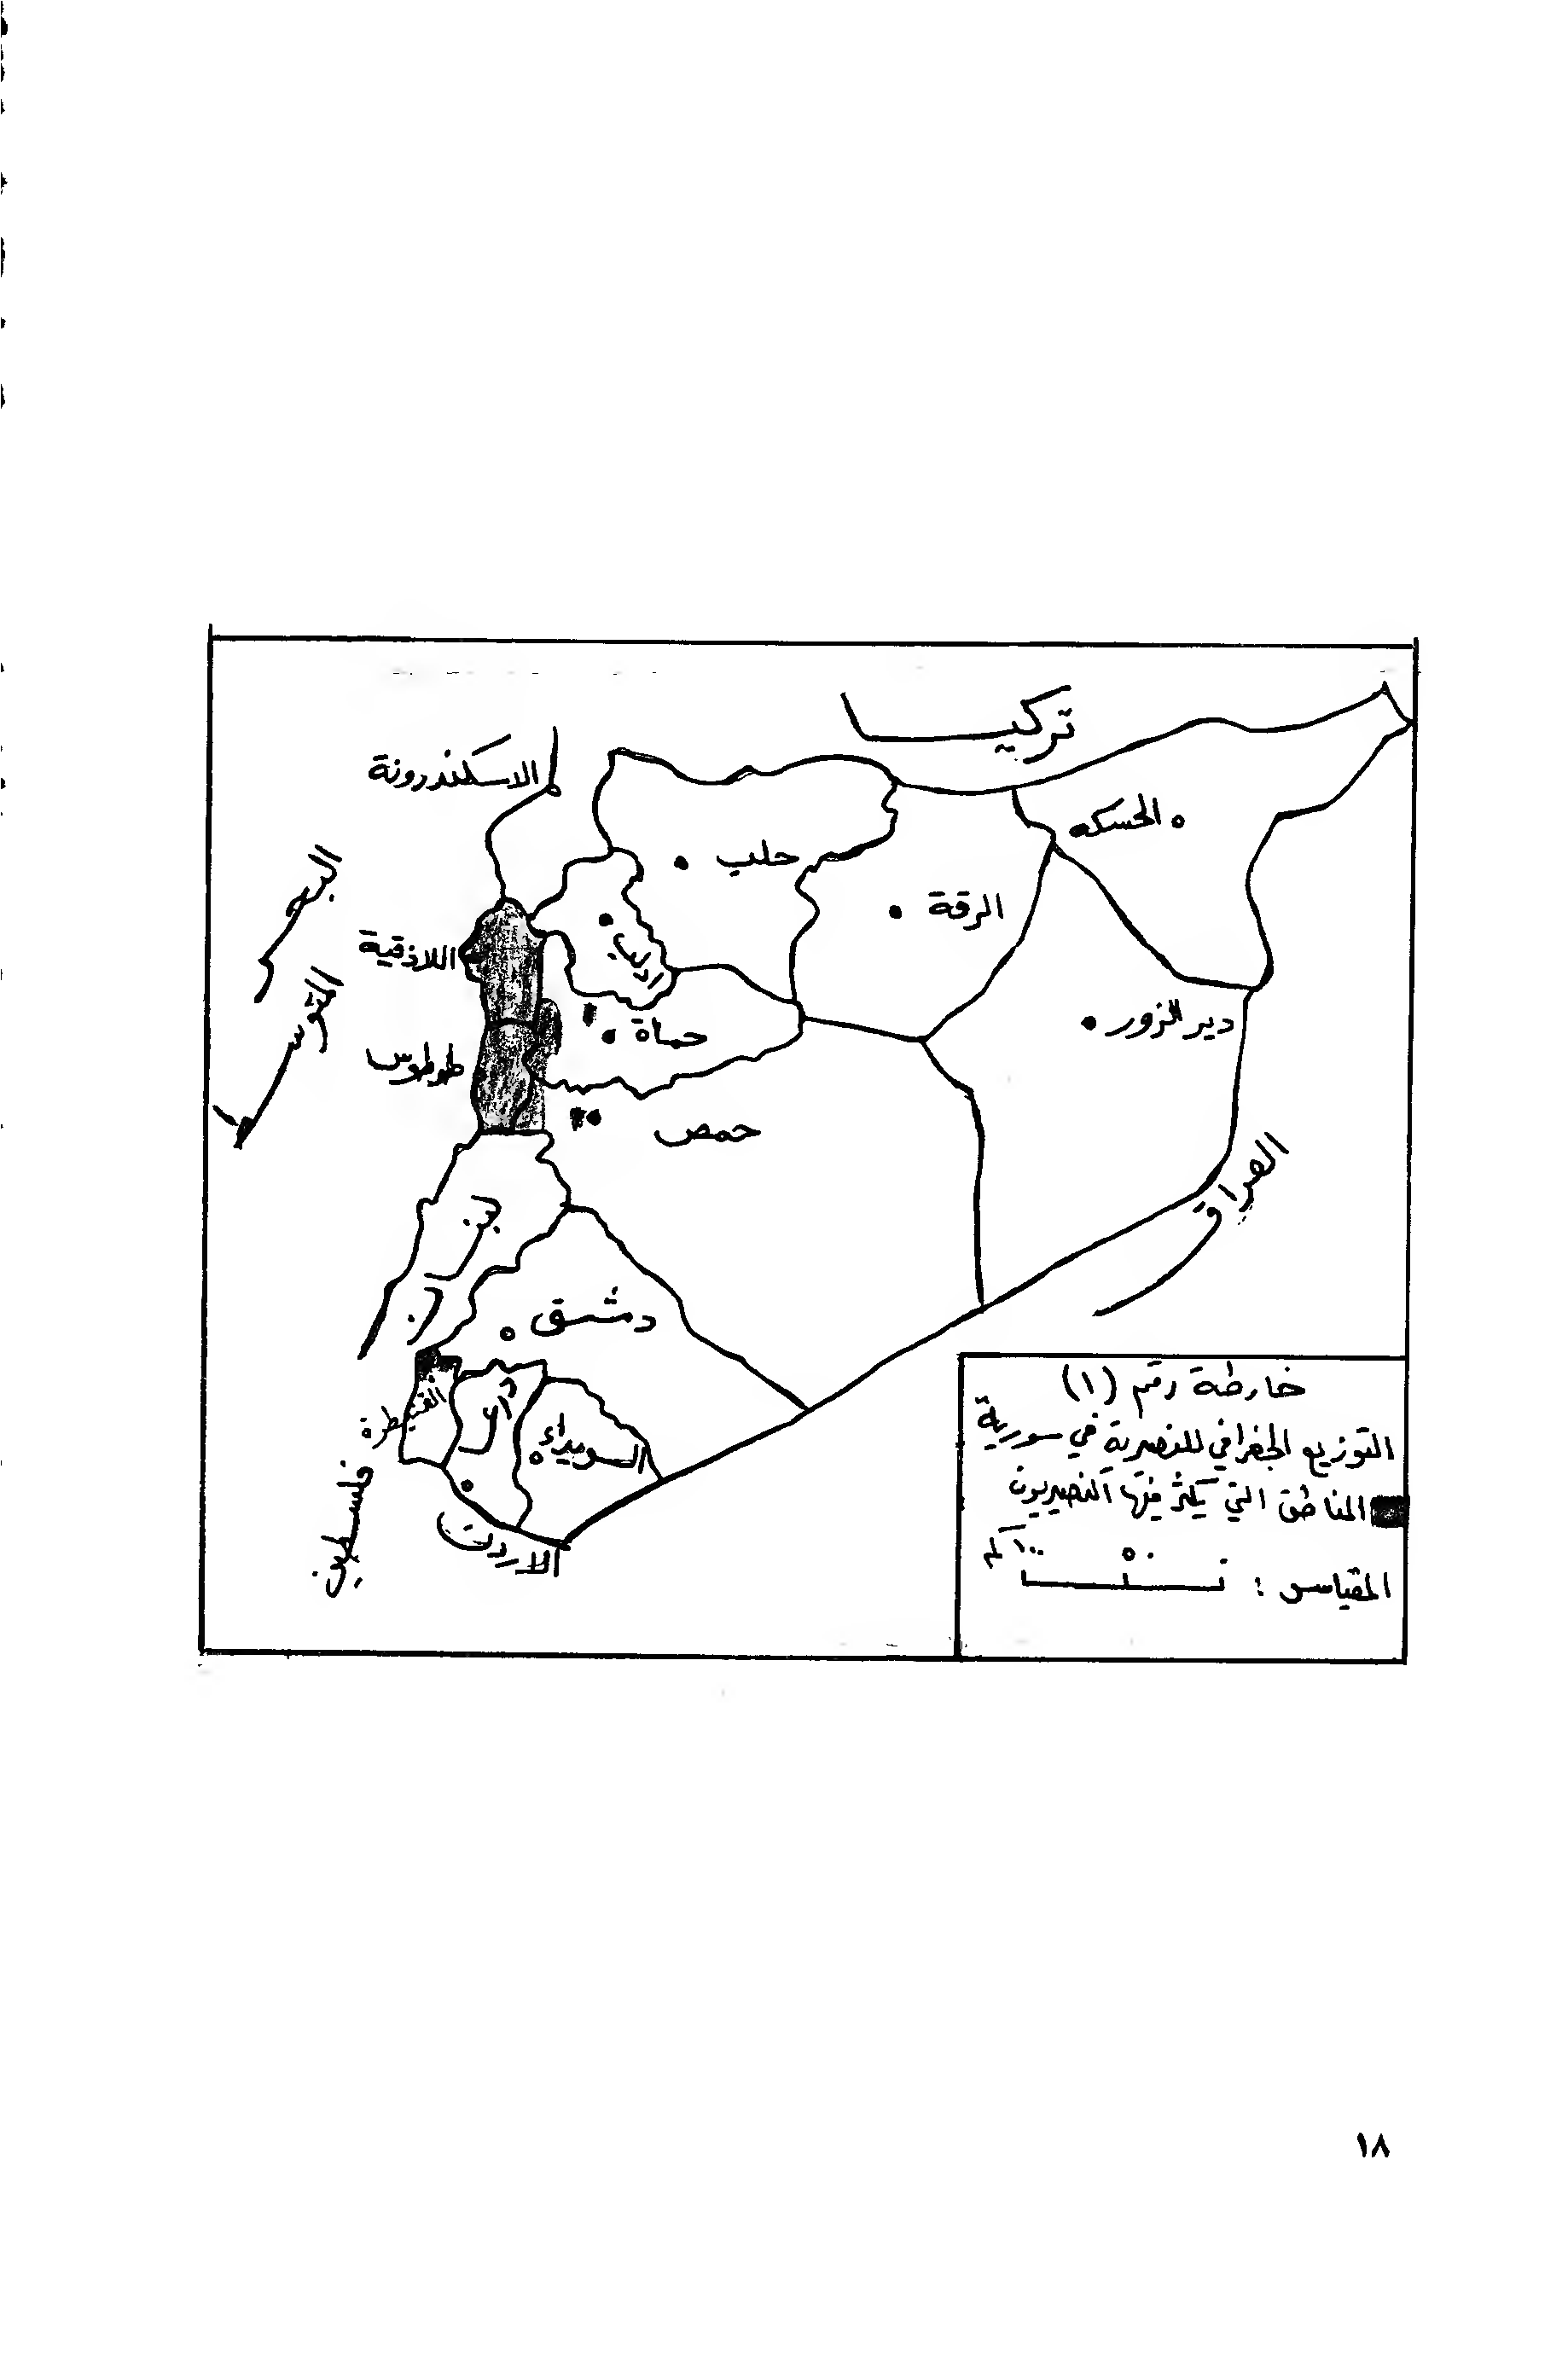 تركيا
الاسكندرونة
الحسكه
حلب
البحر
المتوسط
الرقة
ادلب
اللاذقية
حماة
دير الزور
طرطوس
حمص
العراق
لبنان
دمشق
القنيطرة
درعا
السويداء
فلسطين
الاردن
خارطة رقم (١)
التوزيع الجغرافي للنصيرية في سورية
المناطق التي يكثر فيها النصيريون
المقياس : ٠ ٥٠ ١٠٠ كم
١٨